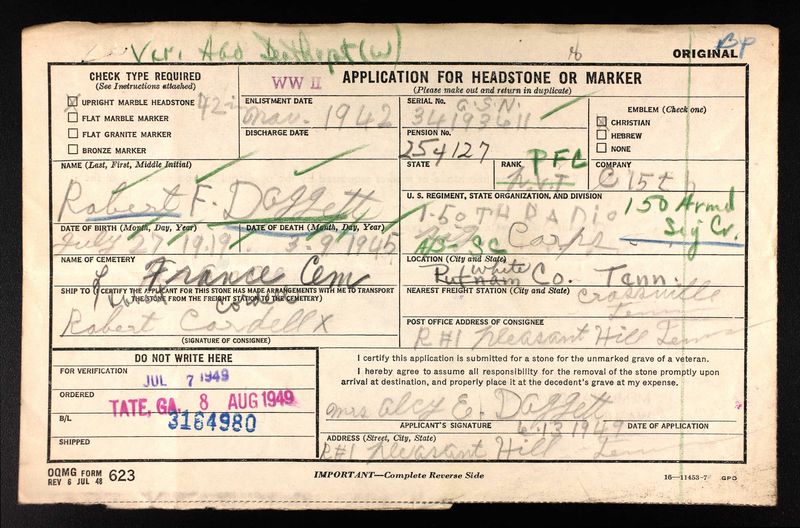 Ver. AGO Dec Rept (W)
ORIGINAL
BP
CHECK TYPE REQUIRED
(See Instructions attached)
WW II
APPLICATION FOR HEADSTONE OR MARKER
(Please make out and return in duplicate)
UPRIGHT MARBLE HEADSTONE 42 in
FLAT MARBLE MARKER
FLAT GRANITE MARKER
BRONZE MARKER
ENLISTMENT DATE
Mar. 1942
DISCHARGE DATE
SERIAL No. G.S.N.
34193611
PENSION No.
254127
EMBLEM (Check one)
CHRISTIAN
HEBREW
NONE
NAME (Last, First, Middle Initial)
Robert F. Daggett
STATE
RANK PFC
Pvt
COMPANY
C 15th
U. S. REGIMENT, STATE ORGANIZATION, AND DIVISION
150TH RADIO
150 Armd
Corps
Sig Cr.
AS-SC
DATE OF BIRTH (Month, Day, Year)
July 27 1919
DATE OF DEATH (Month, Day, Year)
3-9 1945
NAME OF CEMETERY
France Cem
LOCATION (City and State)
Putnam White Co. Tenn.
SHIP TO (I CERTIFY THE APPLICANT FOR THIS STONE HAS MADE ARRANGEMENTS WITH ME TO TRANSPORT
THE STONE FROM THE FREIGHT STATION TO THE CEMETERY)
Robert Cordell x
(SIGNATURE OF CONSIGNEE)
NEAREST FREIGHT STATION (City and State)
Crossville
Tenn
POST OFFICE ADDRESS OF CONSIGNEE
R#1 Pleasant Hill Tenn
DO NOT WRITE HERE
FOR VERIFICATION
JUL 7 1949
ORDERED
TATE, GA. 8 AUG 1949
B/L
3164980
SHIPPED
I certify this application is submitted for a stone for the unmarked grave of a veteran.
I hereby agree to assume all responsibility for the removal of the stone promptly upon
arrival at destination, and properly place it at the decedent's grave at my expense.
Mrs Alcy E. Daggett
6-13 1949
APPLICANT'S SIGNATURE
DATE OF APPLICATION
ADDRESS (Street, City, State)
R#1 Pleasant Hill Tenn
OQMG FORM
REV 6 JUL 48 623
IMPORTANT—Complete Reverse Side
16—11453-7 GPO